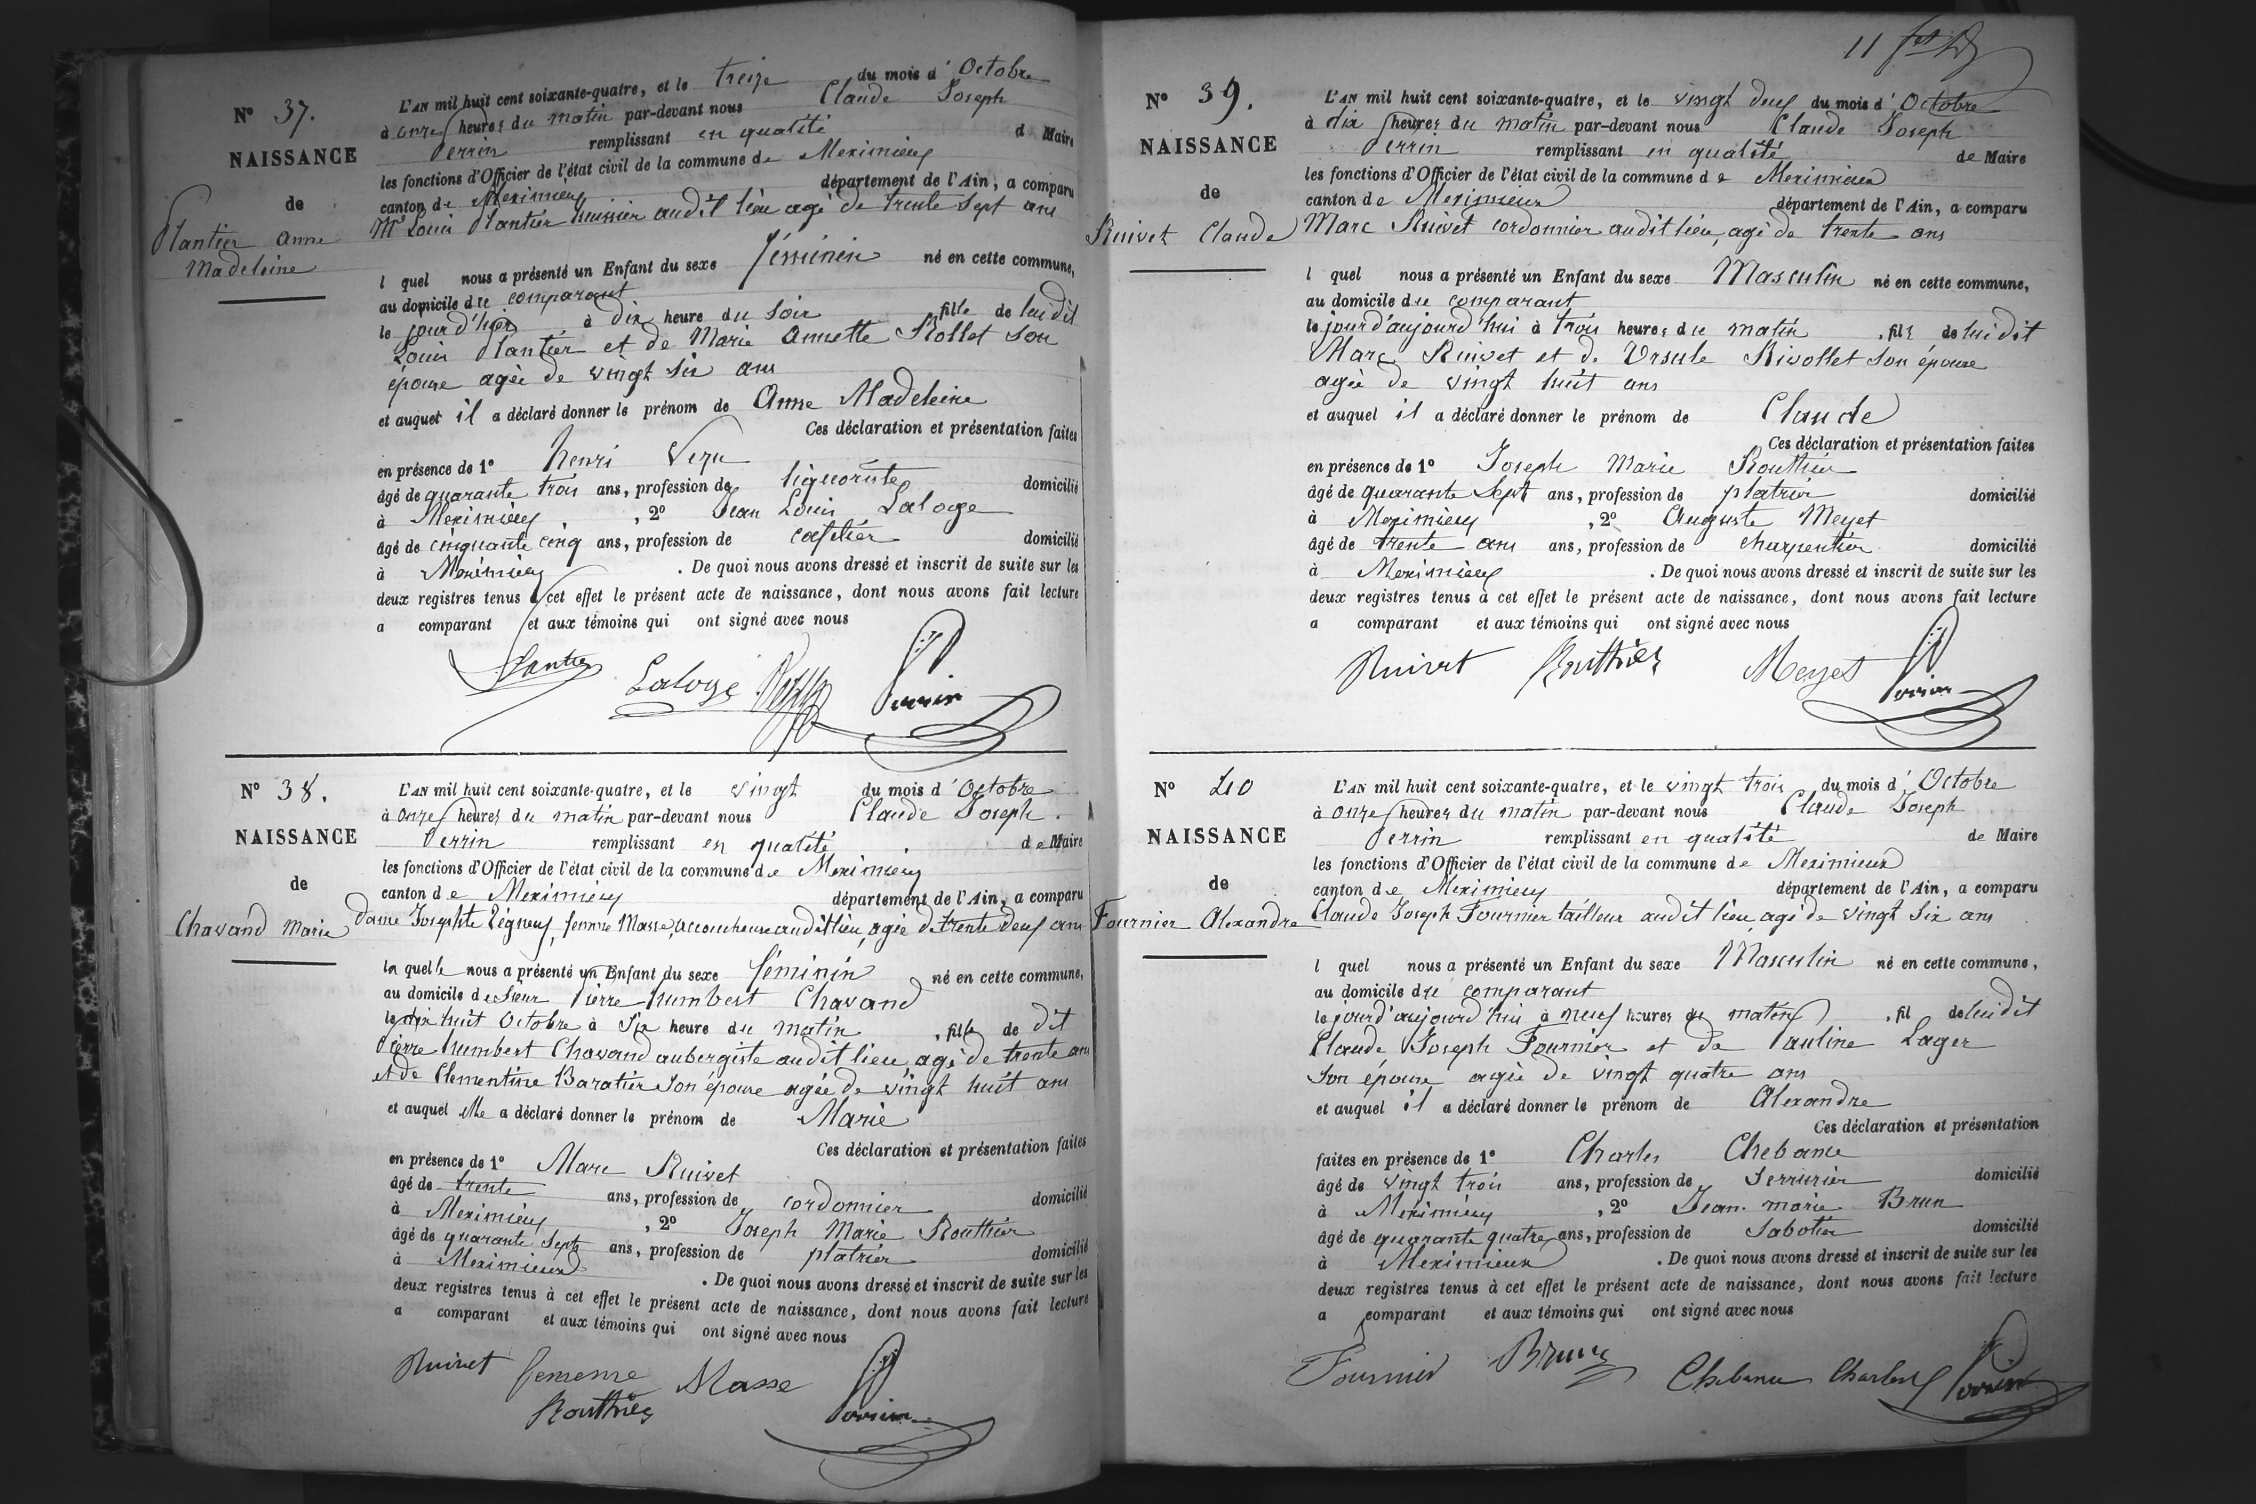 N° 37.
NAISSANCE
de
Plantier Anne
Madeleine
L'AN mil huit cent soixante-quatre, et le treize du mois d'Octobre
à onze heures du matin par-devant nous Claude Joseph
Perrin remplissant en qualité d Maire
les fonctions d'Officier de l'état civil de la commune de Meximieux
canton de Meximieux département de l'Ain, a comparu
Mr Louis Plantier huissier audit lieu agé de trente sept ans
l quel nous a présenté un Enfant du sexe féminin né en cette commune,
au domicile du comparant
le jour d'hier à dix heure du soir , fille de lui dit
Louis Plantier et de Marie Annette Rollet son
épouse agée de vingt six ans
et auquel il a déclaré donner le prénom de Anne Madeleine
Ces déclaration et présentation faites
en présence de 1° henri
âgé de quarante trois ans, profession de liquoriste domicilié
à Meximieux , 2° Jean Louis Laloge
âgé de cinquante cinq ans, profession de cafetier domicilié
à Meximieux . De quoi nous avons dressé et inscrit de suite sur les
deux registres tenus à cet effet le présent acte de naissance, dont nous avons fait lecture
a comparant et aux témoins qui ont signé avec nous
Plantier Laloge Perrin
N° 38.
NAISSANCE
de
Chavand Marie
L'AN mil huit cent soixante-quatre, et le vingt du mois d'Octobre
à onze heures du matin par-devant nous Claude Joseph
Perrin remplissant en qualité de Maire
les fonctions d'Officier de l'état civil de la commune de Meximieux
canton de Meximieux département de l'Ain, a comparu
dame Josephte femme Masse, accoucheuse audit lieu, agée de trente deux ans
laquelle nous a présenté un Enfant du sexe féminin né en cette commune,
au domicile de Sieur Pierre humbert Chavand
le dix huit Octobre à Six heure du matin , fille de dit
Pierre humbert Chavand aubergiste audit lieu, agé de trente ans
et de Clementine Baratier son épouse agée de vingt huit ans
et auquel elle a déclaré donner le prénom de Marie
Ces déclaration et présentation faites
en présence de 1° Marc Ruivet
âgé de trente ans, profession de cordonnier domicilié
à Meximieux , 2° Joseph Marie Routhier
âgé de quarante sept ans, profession de platrier domicilié
à Meximieux . De quoi nous avons dressé et inscrit de suite sur les
deux registres tenus à cet effet le présent acte de naissance, dont nous avons fait lecture
a comparant et aux témoins qui ont signé avec nous
Ruivet femme Masse
Routhier Perrin
11
N° 39.
NAISSANCE
de
Ruivet Claude
L'AN mil huit cent soixante-quatre, et le vingt deux du mois d'Octobre
à dix heures du matin par-devant nous Claude Joseph
Perrin remplissant en qualité de Maire
les fonctions d'Officier de l'état civil de la commune de Meximieux
canton de Meximieux département de l'Ain, a comparu
Marc Ruivet cordonnier audit lieu, agé de trente ans
l quel nous a présenté un Enfant du sexe Masculin né en cette commune,
au domicile du comparant
le jour d'aujourd'hui à trois heures du matin , fils de lui dit
Marc Ruivet et de Ursule Rivollet son épouse
agée de vingt huit ans
et auquel il a déclaré donner le prénom de Claude
Ces déclaration et présentation faites
en présence de 1° Joseph Marie Routhier
âgé de quarante sept ans, profession de platrier domicilié
à Meximieux , 2° Auguste Meyet
âgé de trente ans ans, profession de charpentier domicilié
à Meximieux . De quoi nous avons dressé et inscrit de suite sur les
deux registres tenus à cet effet le présent acte de naissance, dont nous avons fait lecture
a comparant et aux témoins qui ont signé avec nous
Ruivet Routhier Meyet Perrin
N° 40
NAISSANCE
de
Fournier Alexandre
L'AN mil huit cent soixante-quatre, et le vingt trois du mois d'Octobre
à onze heures du matin par-devant nous Claude Joseph
Perrin remplissant en qualité de Maire
les fonctions d'Officier de l'état civil de la commune de Meximieux
canton de Meximieux département de l'Ain, a comparu
Claude Joseph Fournier tailleur audit lieu, agé de vingt six ans
l quel nous a présenté un Enfant du sexe Masculin né en cette commune,
au domicile du comparant
le jour d'aujourd'hui à neuf heures du matin , fil de lui dit
Claude Joseph Fournier et de Pauline Lager
son épouse agée de vingt quatre ans
et auquel il a déclaré donner le prénom de Alexandre
Ces déclaration et présentation
faites en présence de 1° Charles Chebance
âgé de vingt trois ans, profession de Serrurier domicilié
à Meximieux , 2° Jean-marie Brun
âgé de quarante quatre ans, profession de Sabotier domicilié
à Meximieux . De quoi nous avons dressé et inscrit de suite sur les
deux registres tenus à cet effet le présent acte de naissance, dont nous avons fait lecture
a comparant et aux témoins qui ont signé avec nous
Fournier Brun Chebance Charles Perrin